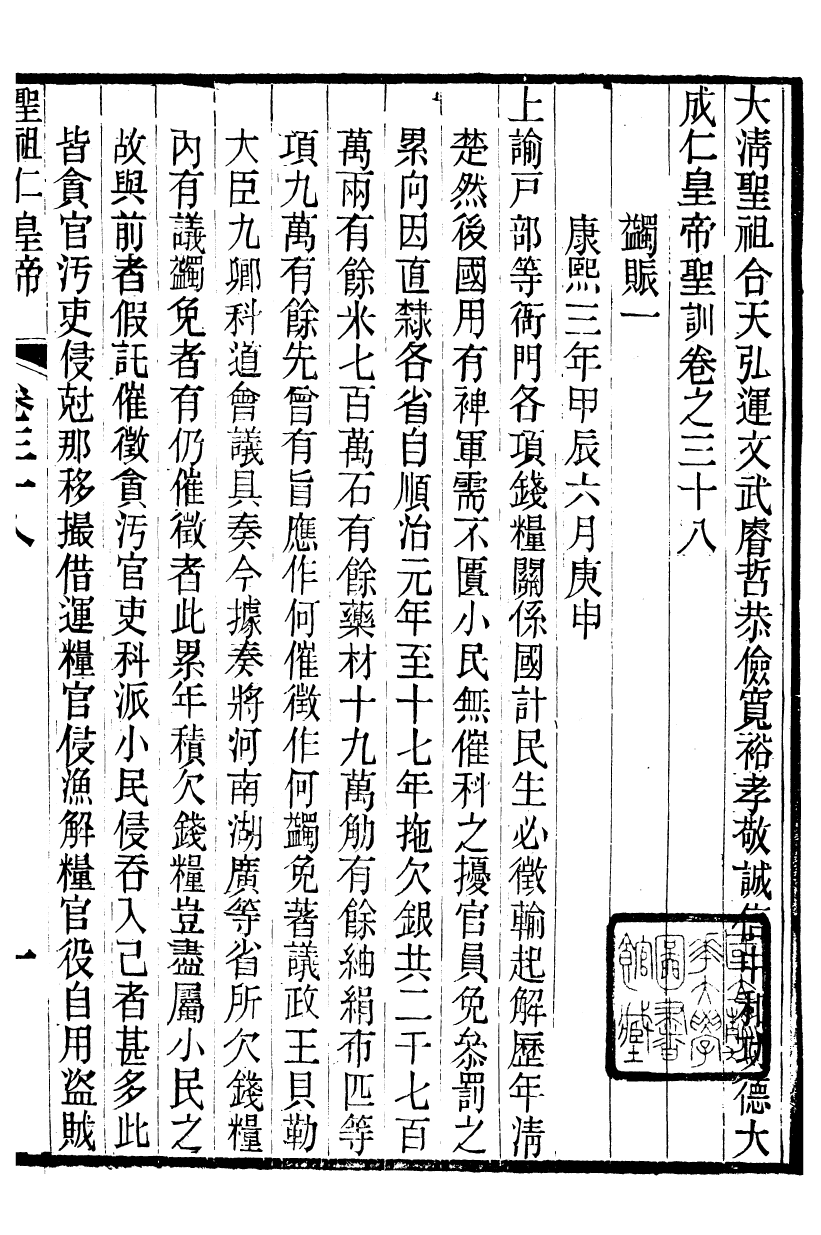 大淸聖祖合天弘運文武睿哲恭儉寬裕孝敬誠信中和功德大
成仁皇帝聖訓卷之三十八
蠲賑一
康熙三年甲辰六月庚申
上諭戸部等衙門各項錢糧關係國計民生必徵輸起解歷年淸
楚然後國用有裨軍需不匱小民無催科之擾官員免叅罰之
累向因直隸各省自順治元年至十七年拖欠銀共二千七百
萬兩有餘米七百萬石有餘藥材十九萬觔有餘紬絹布匹等
項九萬有餘先曾有旨應作何催徵作何蠲免著議政王貝勒
大臣九卿科道會議具奏今據奏將河南湖廣等省所欠錢糧
內有議蠲免者有仍催徵者此累年積欠錢糧豈盡屬小民之
故與前者假託催徵貪汚官吏科派小民侵吞入己者甚多此
皆貪官汚吏侵尅那移撮借運糧官侵漁解糧官役自用盜賊
聖祖仁皇帝
卷三十八
一
圖書
館藏